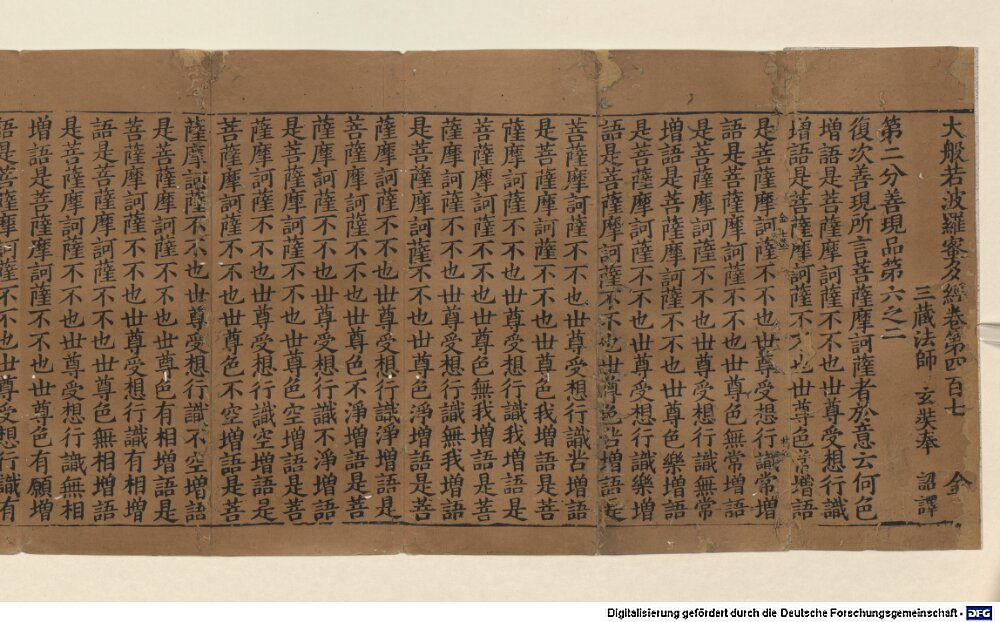 大般若波羅蜜多經卷第四百七 金
三藏法師 玄奘奉 詔譯
第二分善現品第六之二
復次善現所言菩薩摩訶薩者於意云何色
增語是菩薩摩訶薩不不也世尊受想行識
增語是菩薩摩訶薩不不也世尊色常增語
是菩薩摩訶薩不不也世尊受想行識常增
語是菩薩摩訶薩不不也世尊色無常增語
是菩薩摩訶薩不不也世尊受想行識無常
增語是菩薩摩訶薩不不也世尊色樂增語
是菩薩摩訶薩不不也世尊受想行識樂增
語是菩薩摩訶薩不不也世尊色苦增語是
菩薩摩訶薩不不也世尊受想行識苦增語
是菩薩摩訶薩不不也世尊色我增語是
菩薩摩訶薩不不也世尊受想行識我增語是
菩薩摩訶薩不不也世尊色無我增語是
菩薩摩訶薩不不也世尊受想行識無我增語
是菩薩摩訶薩不不也世尊色淨增語是菩
薩摩訶薩不不也世尊受想行識淨增語是
菩薩摩訶薩不不也世尊色不淨增語是菩
薩摩訶薩不不也世尊受想行識不淨增語
是菩薩摩訶薩不不也世尊色空增語是菩
薩摩訶薩不不也世尊受想行識空增語是
菩薩摩訶薩不不也世尊色不空增語是菩
薩摩訶薩不不也世尊受想行識不空增語
是菩薩摩訶薩不不也世尊色有相增語是
菩薩摩訶薩不不也世尊受想行識有相增
語是菩薩摩訶薩不不也世尊色無相增語
是菩薩摩訶薩不不也世尊受想行識無相
增語是菩薩摩訶薩不不也世尊色有願增
語是菩薩摩訶薩不不也世尊受想行識有
Digitalisierung gefördert durch die Deutsche Forschungsgemeinschaft - DFG